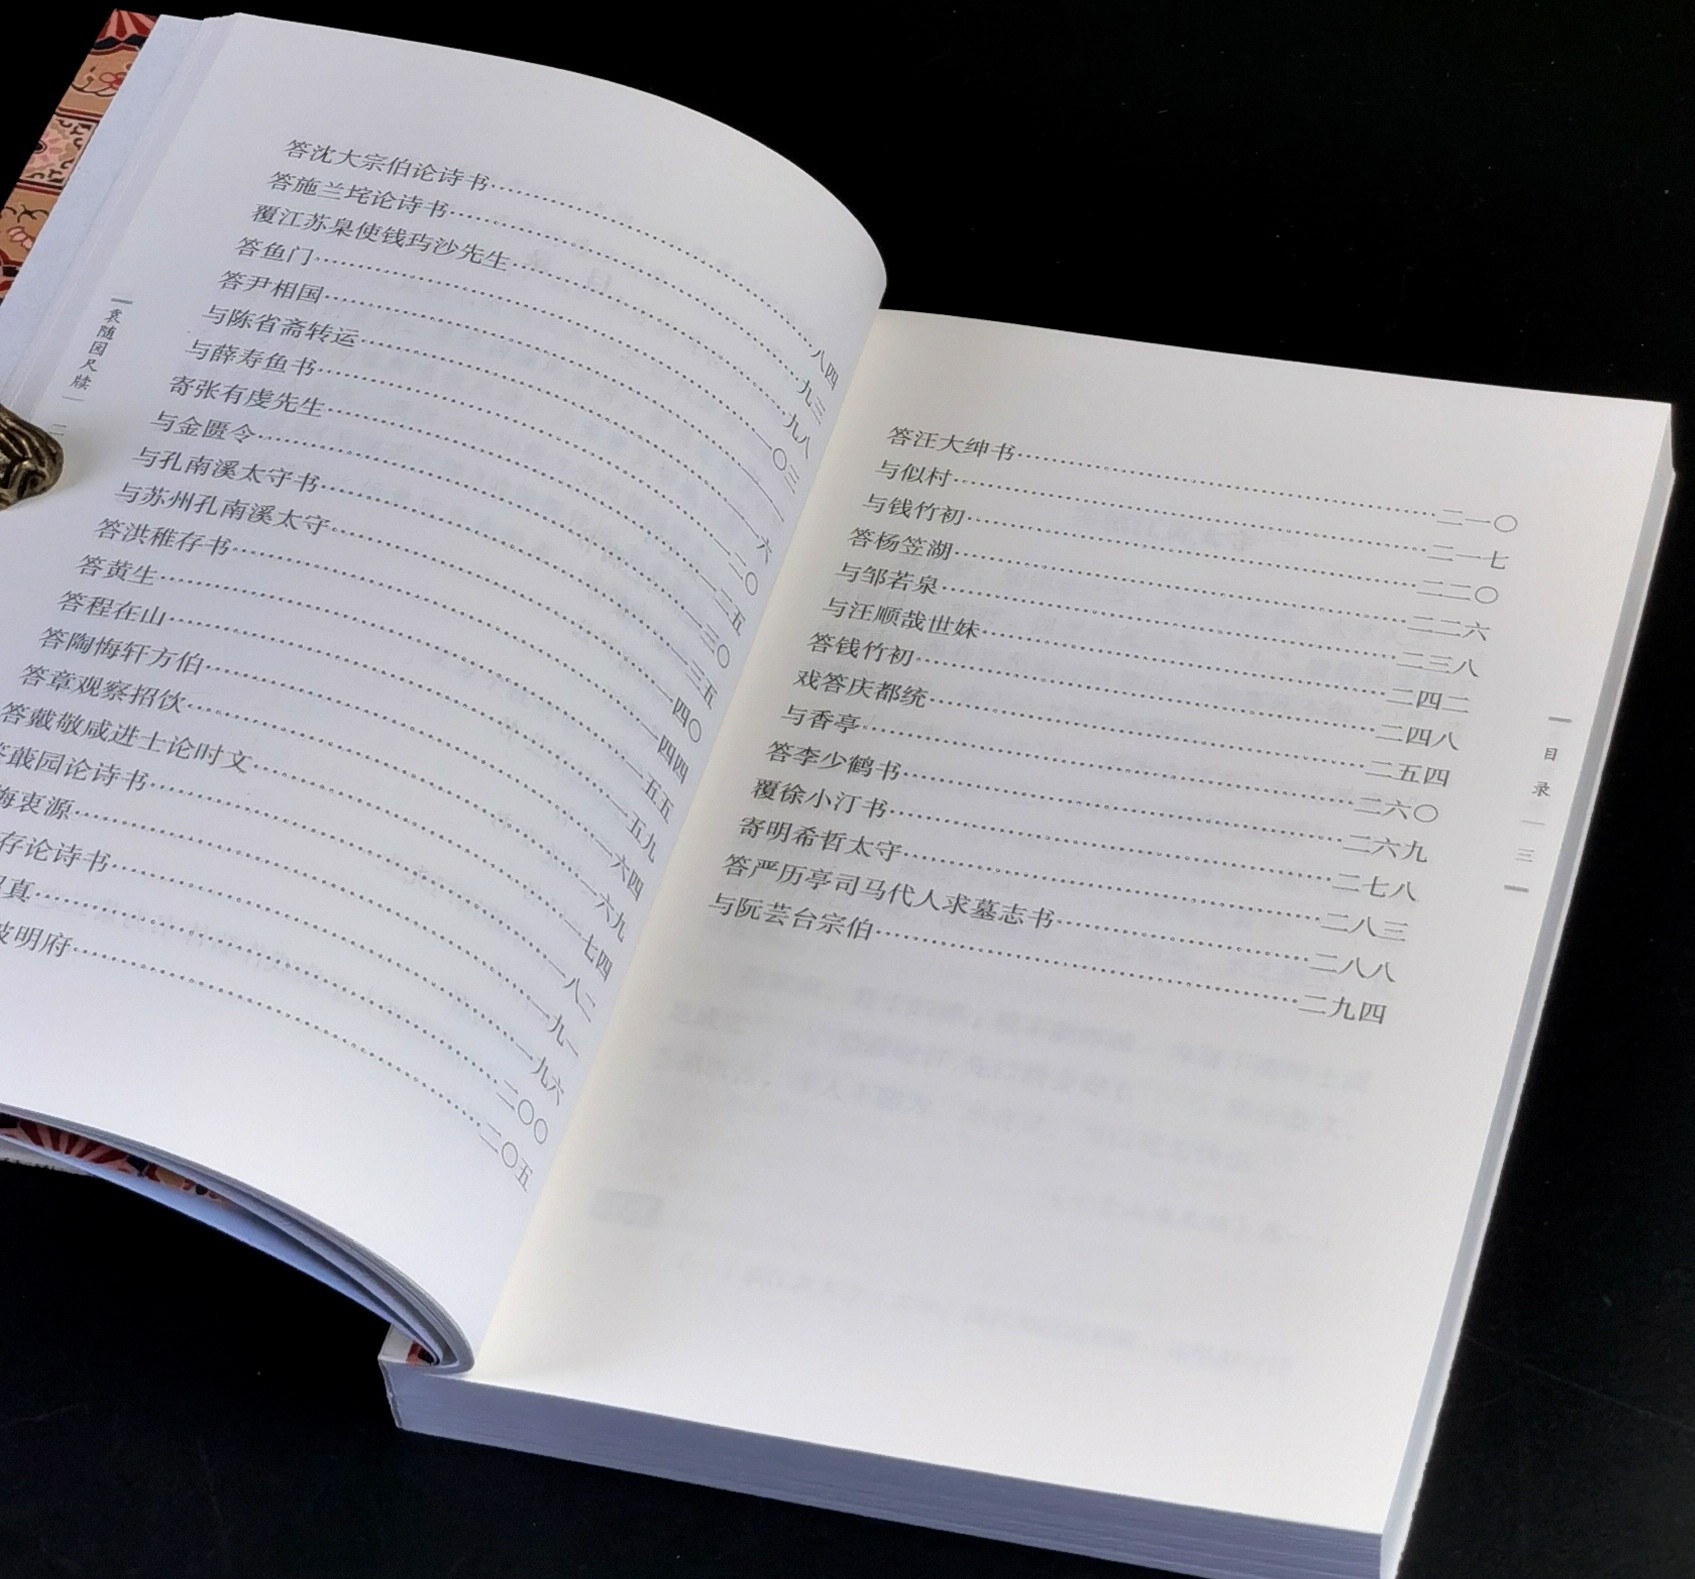 答沈大宗伯论诗书……八四
答施兰垞论诗书……九三
覆江苏臬使钱玙沙先生……九八
答鱼门……一〇三
答尹相国……
与陈省斋转运……一一六
与薛寿鱼书……一二〇
寄张有虔先生……一二五
与金匮令……一三〇
与孔南溪太守书……一三五
与苏州孔南溪太守……一四〇
答洪稚存书……一四四
答黄生……一五五
答程在山……一五九
答陶悔轩方伯……一六四
答章观察招饮……一六九
答戴敬咸进士论时文……一七四
答蕺园论诗书……一八二
衷源……一九一
存论诗书……一九六
真……二〇〇
明府……二〇五
袁随园尺牍
二
答汪大绅书……二一〇
与似村……二一七
与钱竹初……二二〇
答杨笠湖……二二六
与邹若泉……二三八
与汪顺哉世妹……二四二
答钱竹初……二四八
戏答庆都统……二五四
与香亭……二六〇
答李少鹤书……二六九
覆徐小汀书……二七八
寄明希哲太守……二八三
答严历亭司马代人求墓志书……二八八
与阮芸台宗伯……二九四
目录
三